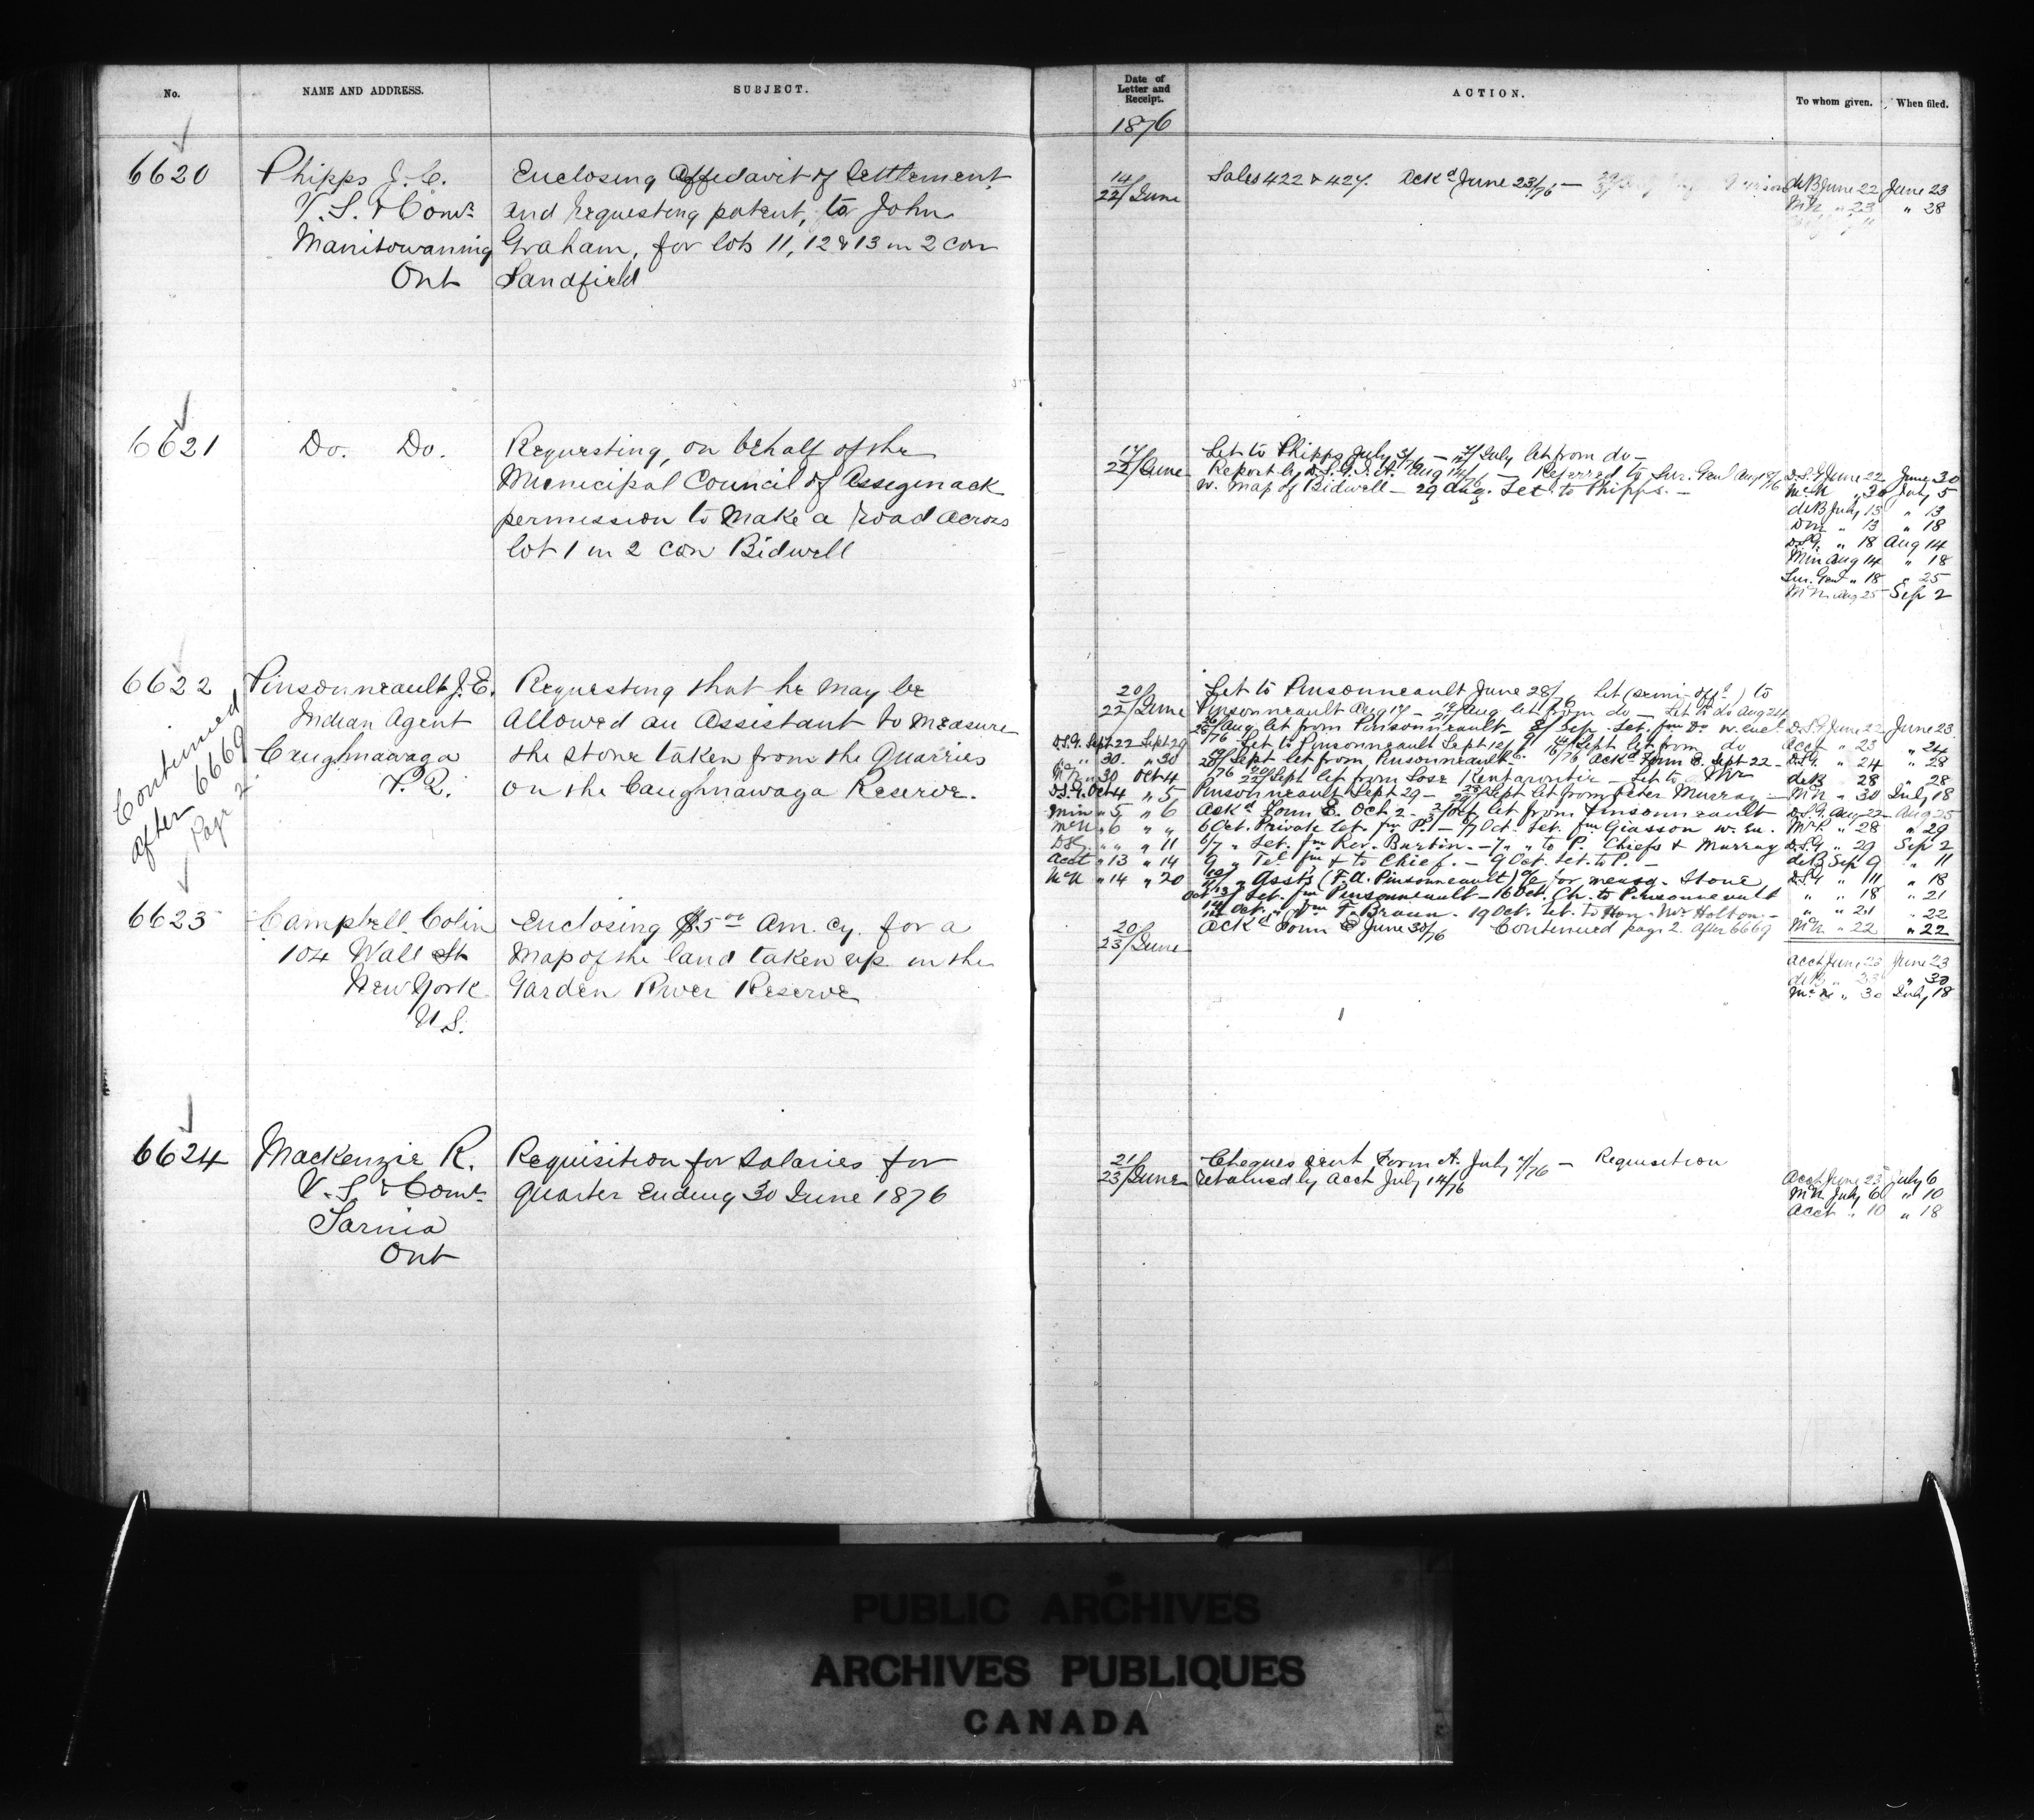 No.
NAME AND ADDRESS.
SUBJECT.
Date of
Letter and
Receipt.
ACTION.
To whom given.
When filed.
1876
6620
Phipps J. C.
V. S. & Comr
Manitowaning
Ont
Enclosing Affidavit of Settlement
and requesting patent, to John
Graham, for lots 11, 12 & 13 in 2 con
Sandfield
14/
22/June
Sales 422 & 427. Ackd June 23/76 —
deB June 22 June 23
McN " 23 " 28
6621
Do. Do.
Requesting, on behalf of the
Municipal Council of Assegenack
permission to make a road across
lot 1 in 2 con Bidwell
17/
22/June
Let to Phipps July 3/76 — July let from do —
Report by D.S.G.I.A. Aug 14/76 — Referred to Sur. Genl Aug 18/76
w. Map of Bidwell — 29 Aug. Let. to Phipps. —
D.S.G. June 22 June 30
McN " 30 July 5
deB July 13 " 13
Dm " 13 " 18
D.S.G. " 18 Aug 14
Min Aug 14 " 18
Sur. Genl " 18 " 25
McN Aug 25 Sep 2
6622
Continued
after 6669
Page 2
Pinsonneault J. E.
Indian Agent
Caughnawaga
P. Q.
Requesting that he may be
allowed an Assistant to measure
the stone taken from the Quarries
on the Caughnawaga Reserve.
20/
22/June
Let to Pinsonneault June 28/76 Let (semi-offl) to
Pinsonneault Aug 17 — Aug let from do — Let to do Aug 24
Aug let from Pinsonneault — 8/9 Sep. Let. fm Do w. encl.
Let to Pinsonneault Sept 12/76 Sept let from do
Sept let from Pinsonneault 16/76 Ackd Form E. Sept 22 —
Sept let from Sose Kentarontie — Let to Mr
Pinsonneault Sept 29 — Sept let from Peter Murray —
Ackd Form E. Oct. 2 — Oct let from Pinsonneault
6 Oct. Private let. fm P. — 6/7 Oct. Let. fm Giasson w. en.
6/7 " Let. fm Rev. Burtin. — 7 " " to P. Chiefs & Murray
9 " Tel fm & to Chief. — 9 Oct. Let. to P. —
" Assts (F. A. Pinsonneault) a/c for measg. Stone
Let. fm Pinsonneault — 16 Oct. Ch. to Pinsonneault
Oct. " fm F. Braun. 19 Oct. Let. to Hon. Mr Holton. —
Continued page 2. after 6669
D.S.G. Sept 22 Sept 29
" 30. " 30
McN " 30 Oct 4
D.S.G. Oct 4 " 5
Min " 5 " 6
McN " 6 " "
DSG " " " 11
Acct " 13 " 14
McN " 14 " 20
D.S.G. June 22 June 23
Acct " 23 " 24
D.S.G. " 24 " 28
deB 28 " 28
McN " 30 July 18
D.S.G. Aug 22 Aug 25
" 28 " 29
D.S.G. " 29 Sep 2
deB Sep 9 " 11
D.S.G. " 11 " 18
" " 18 " 21
" " 21 " 22
McN " 22 " 22
6623
Campbell Colin
104 Wall St
New York
U.S.
Enclosing $5 00 Am. Cy. for a
Map of the land taken up in the
Garden River Reserve
20/
23/June
Ackd Form E June 30/76
Acct June 23 June 23
deB " 23 " 30
McN " 30 July 18
6624
Mackenzie R.
V. S. & Comr
Sarnia
Ont
Requisition for Salaries for
quarter ending 30 June 1876
21/
23/June
Cheques sent Form A. July 7/76 — Requisition
retained by Acct July 14/76
Acct June 23 July 6
McN July 6 " 10
Acct " 10 " 18
PUBLIC ARCHIVES
ARCHIVES PUBLIQUES
CANADA